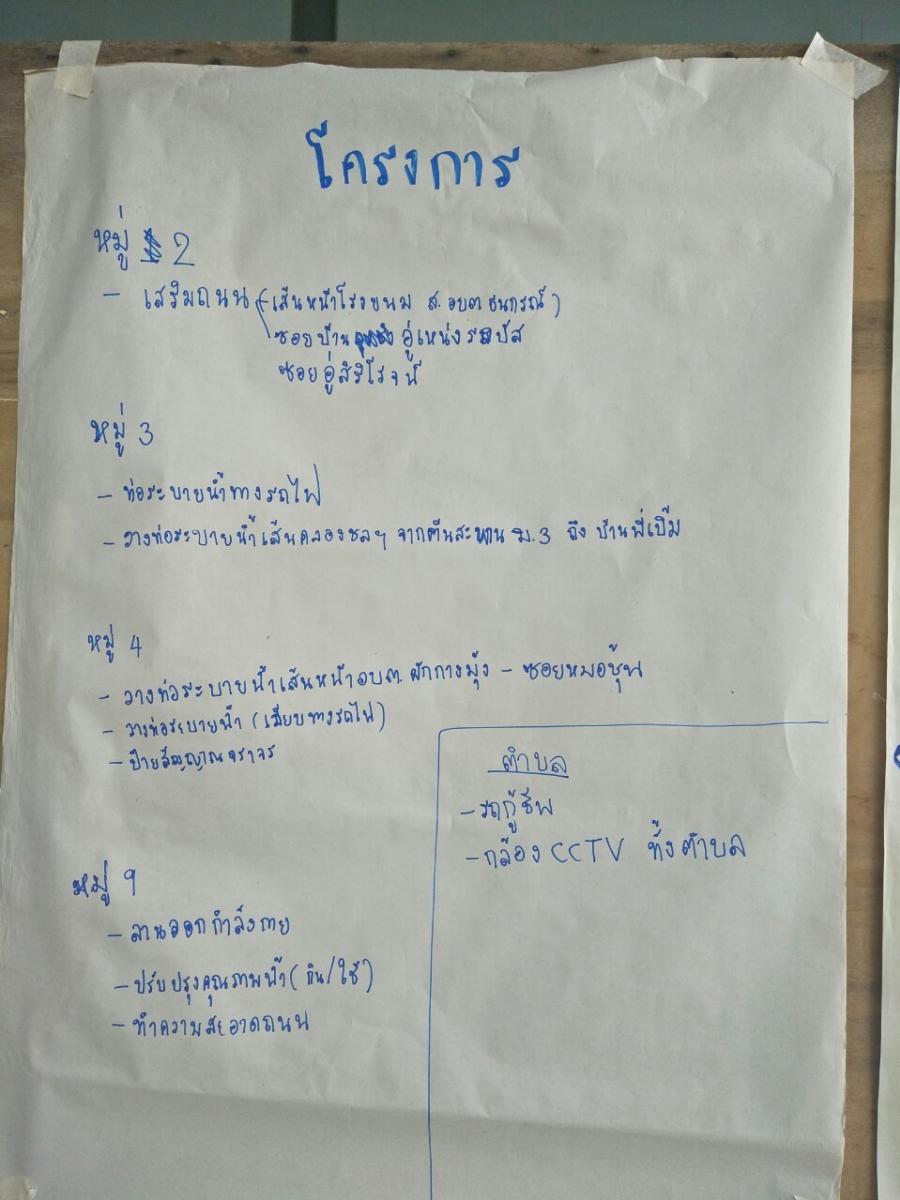 โครงการ
หมู่ 2
- เสริมถนน (เส้นหน้าโรงขนม ส.อบต.ธนกรณ์)
ซอยบ้าน อู่เหน่งรถบัส
ซอยอู่สิริโรจน์
หมู่ 3
- ท่อระบายน้ำทางรถไฟ
- วางท่อระบายน้ำเส้นคลองชลฯ จากต้นสะพาน ม.3 ถึง บ้านพี่เปิ้ม
หมู่ 4
- วางท่อระบายน้ำเส้นหน้าอบต.ผักกางมุ้ง - ซอยหมอชุ้น
- วางท่อระบายน้ำ (เลียบทางรถไฟ)
- ป้ายสัญญาณจราจร
ตำบล
- รถกู้ชีพ
- กล้อง CCTV ทั้งตำบล
หมู่ 9
- ลานออกกำลังกาย
- ปรับปรุงคุณภาพน้ำ (กิน/ใช้)
- ทำความสะอาดถนน